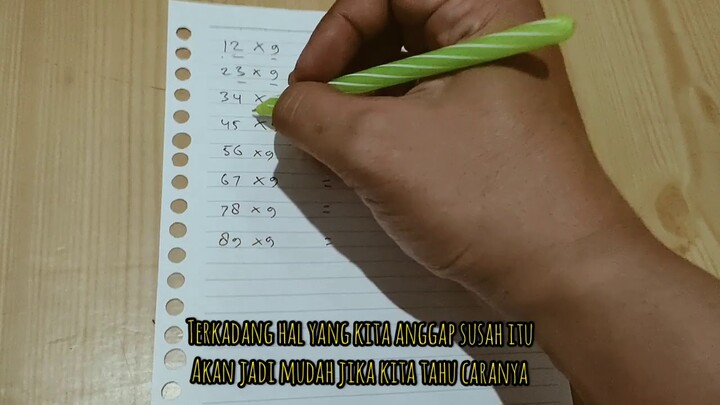 12 × 9
23 × 9
34 ×
45 ×
56 × 9
67 × 9 =
78 × 9 =
89 × 9 =
TERKADANG HAL YANG KITA ANGGAP SUSAH ITU
AKAN JADI MUDAH JIKA KITA TAHU CARANYA